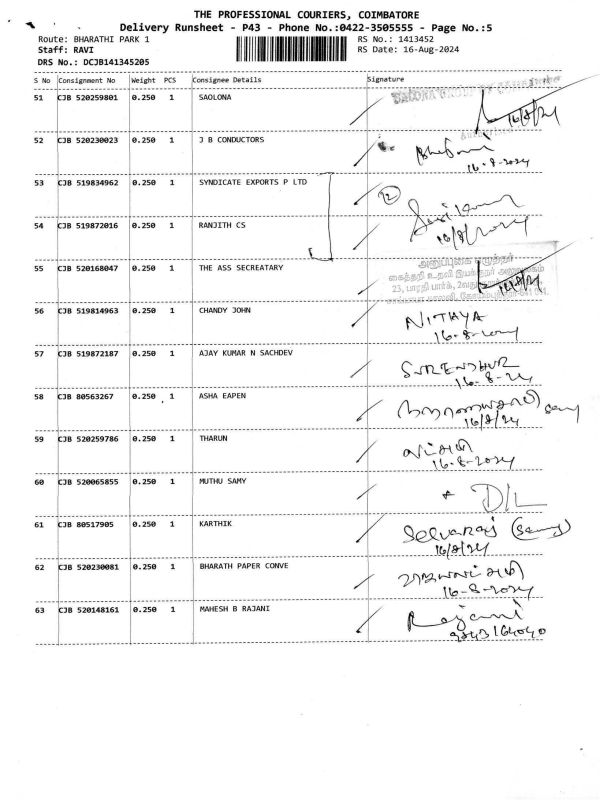 THE PROFESSIONAL COURIERS, COIMBATORE
Delivery Runsheet - P43 - Phone No.:0422-3505555 - Page No.:5
Route: BHARATHI PARK 1 RS No.: 1413452
Staff: RAVI RS Date: 16-Aug-2024
DRS No.: DCJB141345205
S No Consignment No Weight PCS Consignee Details Signature
51 CJB 520259801 0.250 1 SAOLONA 16/8/24
52 CJB 520230023 0.250 1 J B CONDUCTORS
16-8-2024
53 CJB 519834962 0.250 1 SYNDICATE EXPORTS P LTD 12
Sasikumar
54 CJB 519872016 0.250 1 RANJITH CS 16/8/2024
அனுப்புகை எழுத்தர்
55 CJB 520168047 0.250 1 THE ASS SECREATARY
23, பாரதி பார்க்,
56 CJB 519814963 0.250 1 CHANDY JOHN NITHYA
16-8-2024
57 CJB 519872187 0.250 1 AJAY KUMAR N SACHDEV SURENDHUR
16-8-24
58 CJB 80563267 0.250 1 ASHA EAPEN
16/8/24
59 CJB 520259786 0.250 1 THARUN
16-8-2024
60 CJB 520065855 0.250 1 MUTHU SAMY D/L
61 CJB 80517905 0.250 1 KARTHIK Selvaraj
16/8/24
62 CJB 520230081 0.250 1 BHARATH PAPER CONVE
16-8-2024
63 CJB 520148161 0.250 1 MAHESH B RAJANI Rajani
9843164040